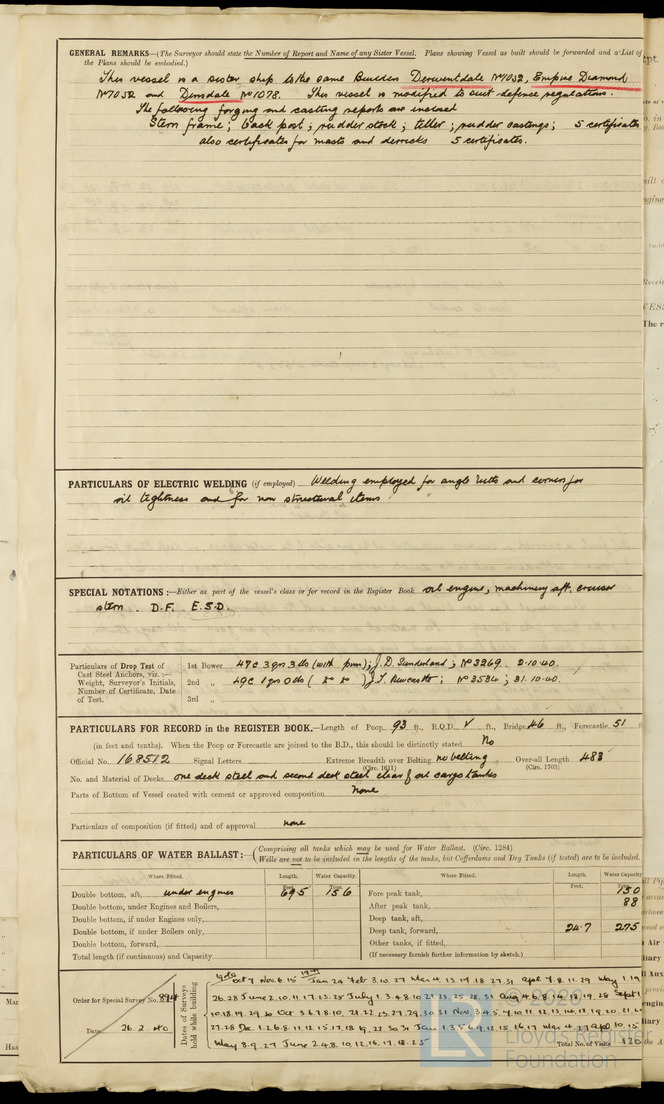 GENERAL REMARKS—(The Surveyor should state the Number of Report and Name of any Sister Vessel. Plans showing Vessel as built should be forwarded and a List of
the Plans should be embodied.)
This vessel is a sister ship to the same Builders Derwentdale No 7052, Empire Diamond
No 7052 and Dinsdale No 1078. This vessel is modified to suit defence regulations.
The following forging and casting reports are inclosed
Stern frame; back post; rudder stock; tiller; rudder castings; 5 certificates
also certificates for masts and derricks 5 certificates.
PARTICULARS OF ELECTRIC WELDING (if employed) Welding employed for angle butts and corners for
oil tightness and for non structural items
SPECIAL NOTATIONS:—Either as part of the vessel's class or for record in the Register Book oil engine, machinery aft, cruiser
stern. D.F. E.S.D.
Particulars of Drop Test of
Cast Steel Anchors, viz. :—
Weight, Surveyor's Initials,
Number of Certificate, Date
of Test.
1st Bower 47c 3qrs 3lbs (with pin); J.D. Sunderland; No 3269. 2.10.40.
2nd „ 49c 1qrs 0lbs ( do do ) J.T. Newcastle; No 3534; 31.10.40.
3rd „
PARTICULARS FOR RECORD in the REGISTER BOOK.—Length of Poop 93 ft., R.Q.D. ft., Bridge 46 ft., Forecastle 51 f
(in feet and tenths). When the Poop or Forecastle are joined to the B.D., this should be distinctly stated No
Official No. 168512 Signal Letters Extreme Breadth over Belting no belting Over-all Length 483
(Circ. 1611) (Circ. 1703)
No. and Material of Decks one deck steel and second deck steel clear of oil cargo tanks
Parts of Bottom of Vessel coated with cement or approved composition none
Particulars of composition (if fitted) and of approval none
PARTICULARS OF WATER BALLAST:— Comprising all tanks which may be used for Water Ballast. (Circ. 1284)
Wells are not to be included in the lengths of the tanks, but Cofferdams and Dry Tanks (if tested) are to be included.
Where Fitted. Length. Water Capacity. Where Fitted. Length. Water Capacity
Feet. Tons. Feet. Tons.
Double bottom, aft, under engines 69.5 156 Fore peak tank, 130
Double bottom, under Engines and Boilers, After peak tank, 88
Double bottom, if under Engines only, Deep tank, aft,
Double bottom, if under Boilers only, Deep tank, forward, 24.7 275
Double bottom, forward, Other tanks, if fitted,
Total length (if continuous) and Capacity (If necessary furnish further information by sketch.)
Order for Special Survey No.
Date 26.2.40
Dates of Surveys held while building
1940 Oct 7 Nov 6.15 1941 Jan 24 Feb 3.10.27 Mar 4.13.17.18.27.31 April 7.8.11.29 May 1.19
26.28 June 2.10.11.17.23.25 July 1.3.4.8.10.21.23.25.28.31 Aug 4.6.8.14.18.19.28 Sept 1
10.18.19.29.30 Oct 3.6.7.8.10.21.22.25.27.29.30.31 Nov 3.4.5.7.10.11.12.13.14.17.19.20.21
27.28 Dec 1.2.6.8.11.12.15.17.18.19.22.30.31 Jan 1.3.5.6.9.12.15.16.17 Mar 4.27 Apl 10.15
May 8.9.27 June 2.4.8.10.12.16.17.18.25
Total No. of Visits 126
LR
© 2020
Lloyd's Register
Foundation